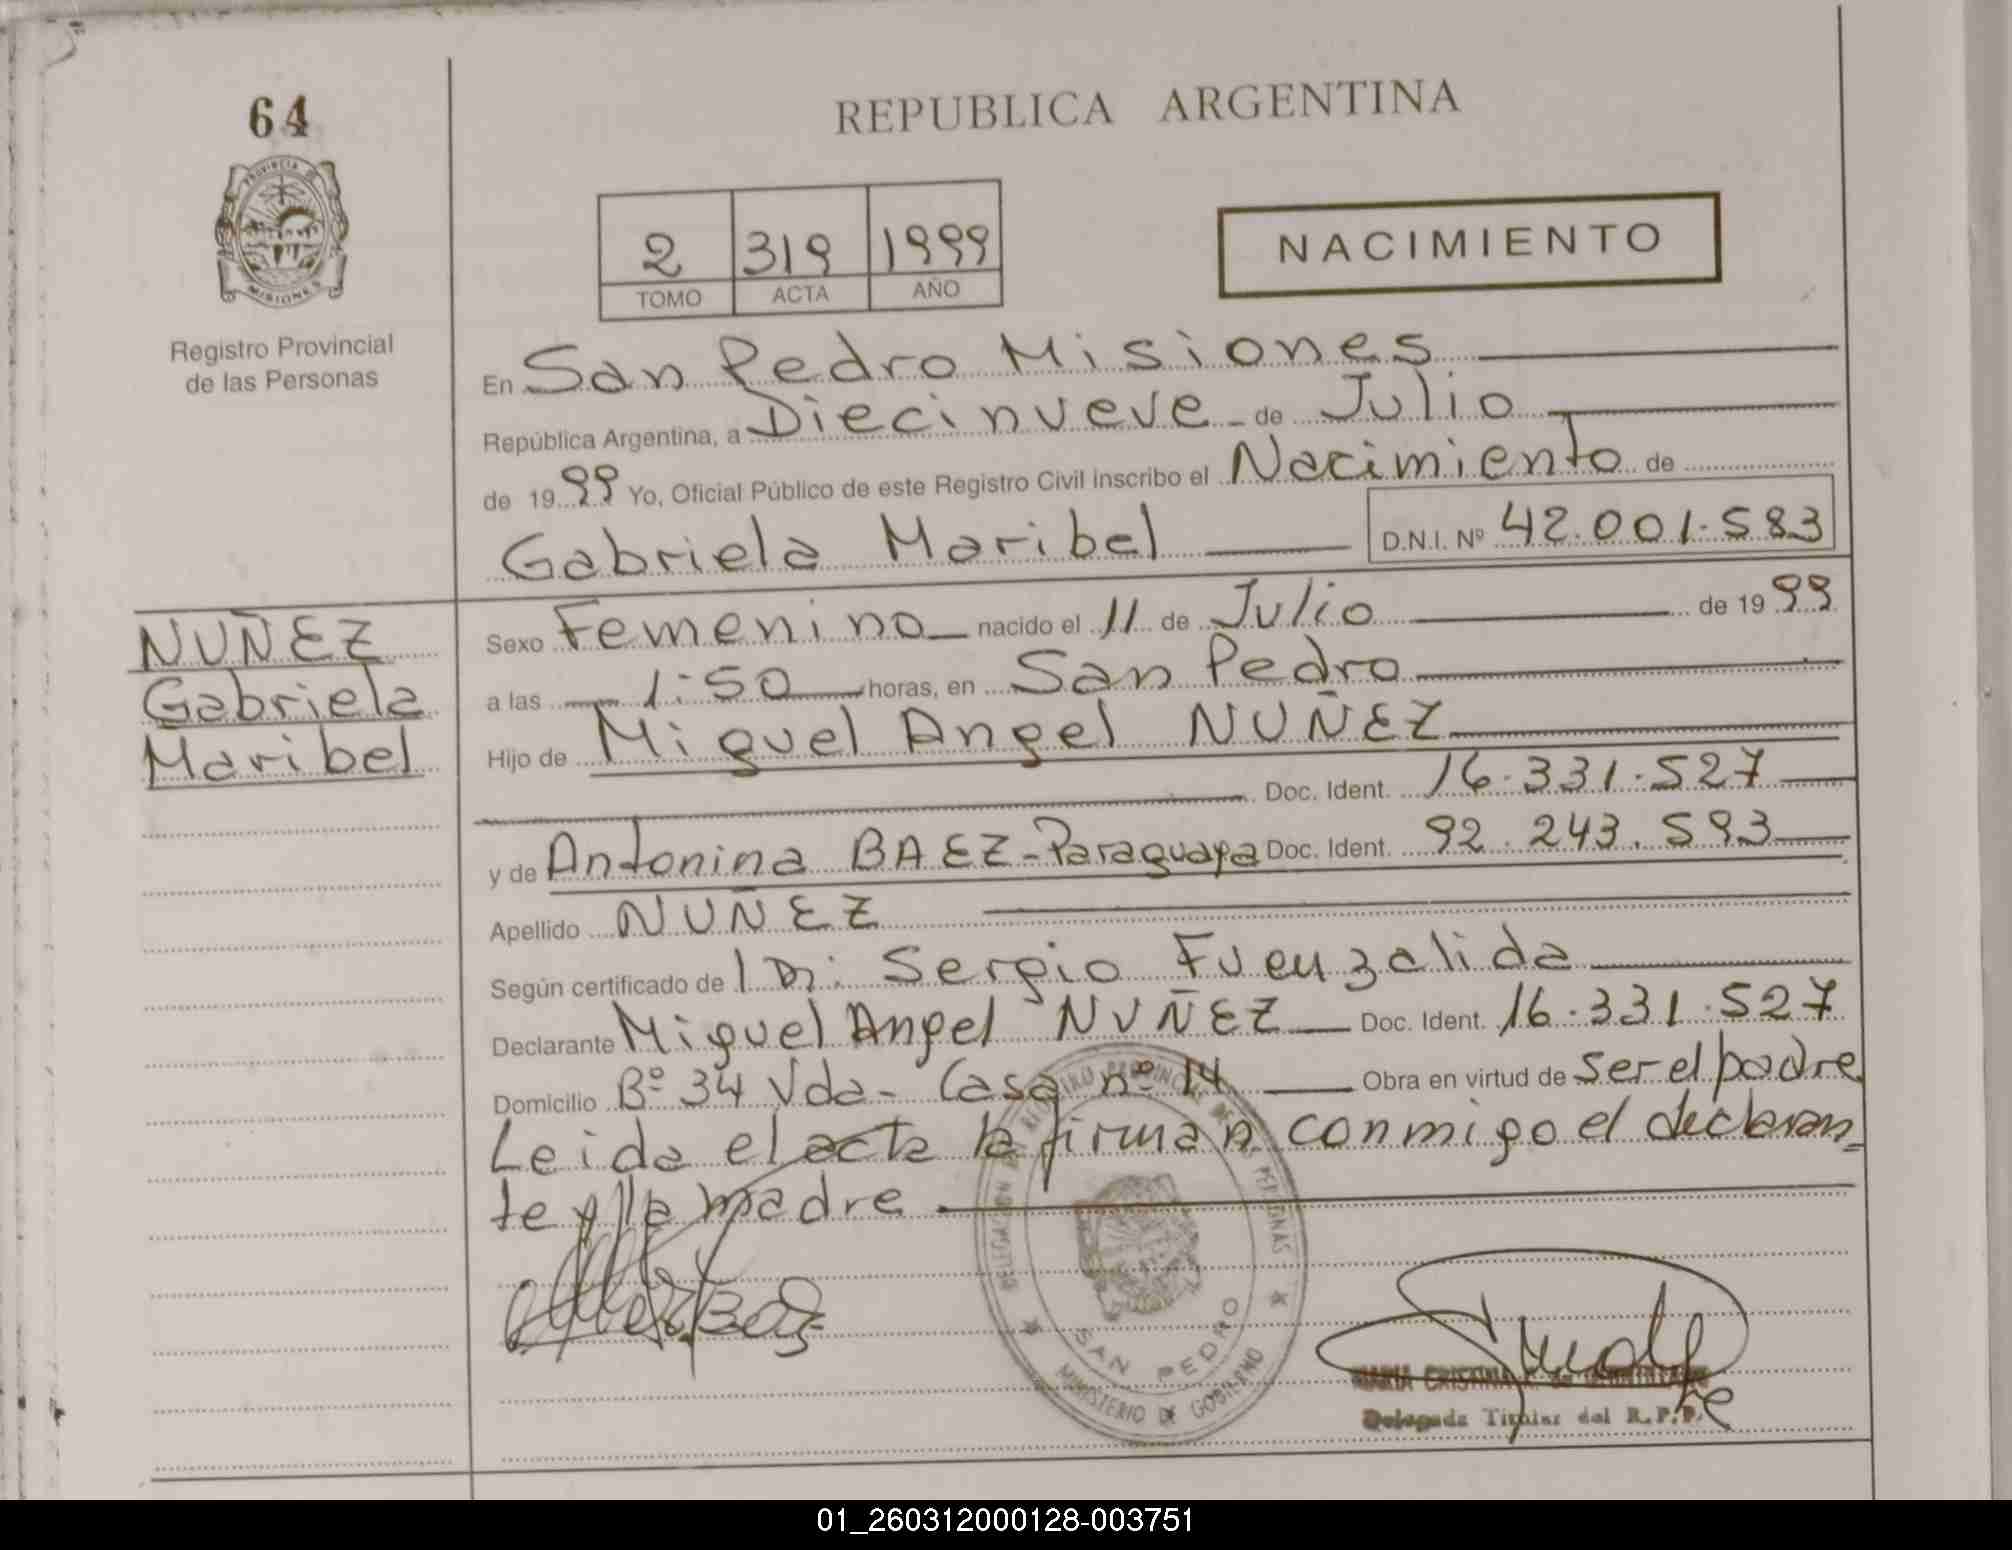 64
REPUBLICA ARGENTINA
PROVINCIA DE
MISIONES
Registro Provincial
de las Personas
2 319 1999
TOMO ACTA AÑO
NACIMIENTO
En San Pedro Misiones
República Argentina, a Diecinueve de Julio
de 1999 Yo, Oficial Público de este Registro Civil inscribo el Nacimiento de
Gabriela Maribel D.N.I. Nº 42.001.583
NUÑEZ
Gabriela
Maribel
Sexo Femenino nacido el 11 de Julio de 1999
a las 1:50 horas, en San Pedro
Hijo de Miguel Angel NUÑEZ
Doc. Ident. 16.331.527
y de Antonina BAEZ-Paraguaya Doc. Ident. 92.243.593
Apellido NUÑEZ
Según certificado de Sergio Fuenzalida
Declarante Miguel Angel NUÑEZ Doc. Ident. 16.331.527
Domicilio Bº 34 Vda- Casa nº 14 Obra en virtud de ser el padre
Leida el acta la firman conmigo el declaran-
te y la madre
DELEGACION DEL REGISTRO PROVINCIAL DE LAS PERSONAS
SAN PEDRO
MINISTERIO DE GOBIERNO
MARIA CRISTINA
Delegada Titular del R.P.P.
01_260312000128-003751